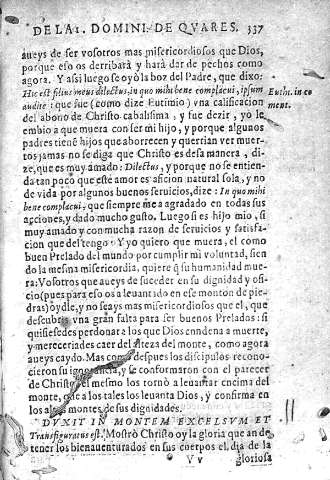 DE LA I. DOMINI. DE QVARES. 337
aueys de ser vosotros mas misericordiosos que Dios,
porque esso os derribarà y harà dar de pechos como
agora. Y assi luego se oyò la boz del Padre, que dixo:
Hic est filius meus dilectus, in quo mihi bene complacui, ipsum
audite: que fue (como dize Eutimio) vna calificacion
del abono de Christo cabalissima, y fue dezir, yo le
embio a que muera con ser mi hijo, y porque algunos
padres tienē hijos que aborrecen y querrian ver muer-
tos jamas no se diga que Christo es desa manera, di-
ze, que es muy amado: Dilectus, y porque no se entien-
da tan poco que este amor es aficion natural sola, y no
de vida por algunos buenos seruicios, dize: In quo mihi
bene complacui, que siempre me a agradado en todas sus
acciones, y dado mucho gusto. Luego si es hijo mio, si
muy amado y con mucha razon de seruicios y satisfa-
cion que del tengo: Y yo quiero que muera, el como
buen Prelado del mundo por cumplir mi voluntad, sien
do la mesma misericordia, quiere q̃ su humanidad mue-
ra: Vosotros que aueys de suceder en su dignidad y ofi-
cio (pues para eso os a leuantado en ese monton de pie-
dras) oydle, y no seays mas misericordiosos que el, que
descubris vna gran falta para ser buenos Prelados: si
quisiesedes perdonar a los que Dios condena a muerte,
y mereceriades caer del alteza del monte, como agora
aueys caydo. Mas como despues los discipulos recono-
cieron su ignorancia, y se conformaron con el parecer
de Christo, el mesmo los tornò a leuantar encima del
monte, que a los tales los leuanta Dios, y confirma en
los altos montes de sus dignidades.
DVXIT IN MONTEM EXCELSVM ET
Transfiguratus est. Mostrò Christo oy la gloria que an de
tener los bienauenturados en sus cuerpos el dia de la
V v gloriosa
Euthi. in co
ment.